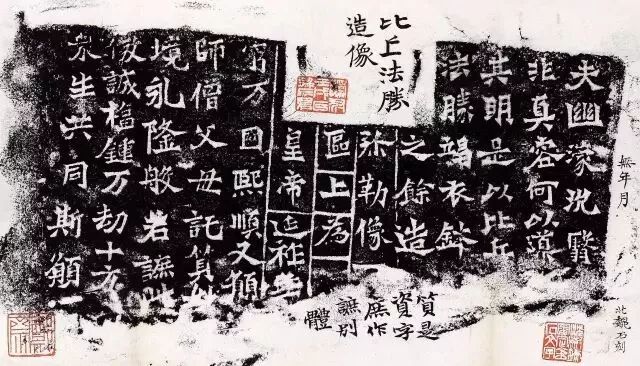 無年月
北魏石刻
夫幽
非真容何以導
其明是以比丘
法勝竭衣鉢
之餘造
弥勒像
區上為
皇帝延祚
窮万國熙順又願
師僧父母託
境永隆般若譕
誠福鍾万劫十方
众生共同斯願
比丘法勝
造像
質是
資字
庶作
譕別
體